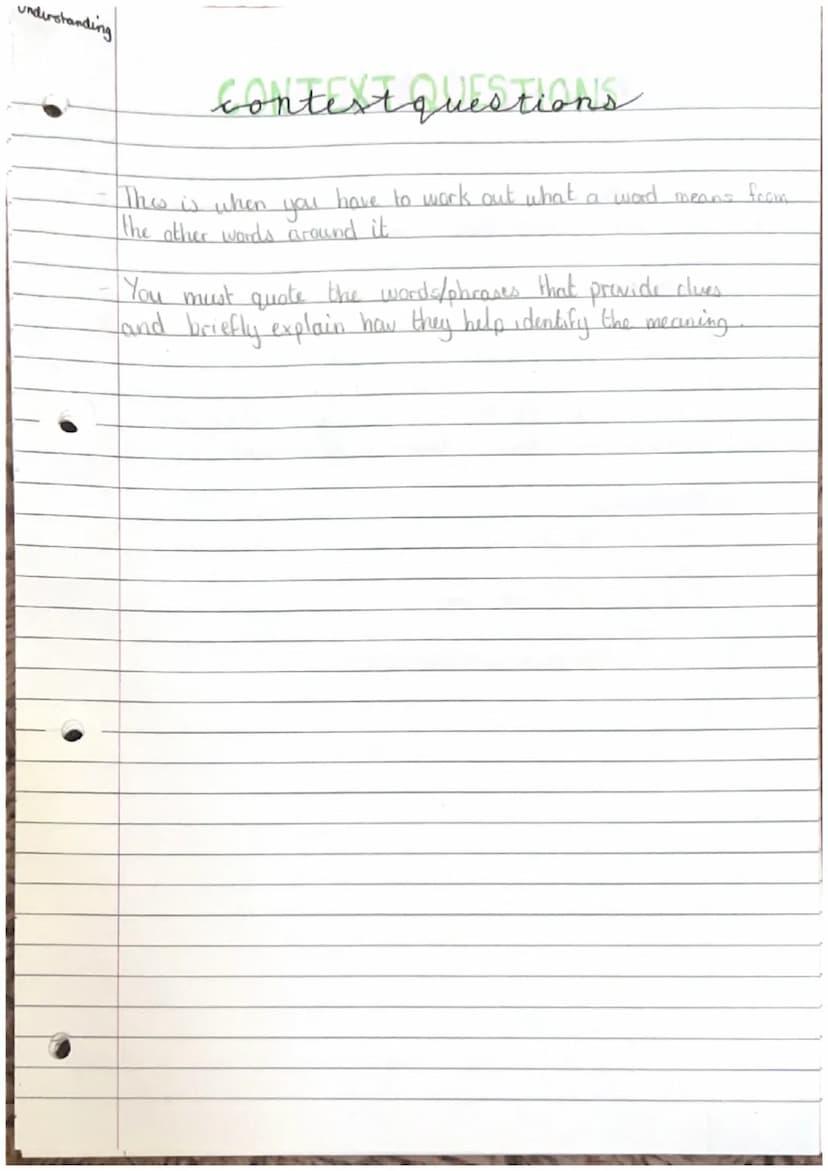 understanding
CONTEXT QUESTIONS
context questions
- This is when you have to work out what a word means from
the other words around it
- You must quote the words/phrases that provide clues
and briefly explain how they help identify the meaning.